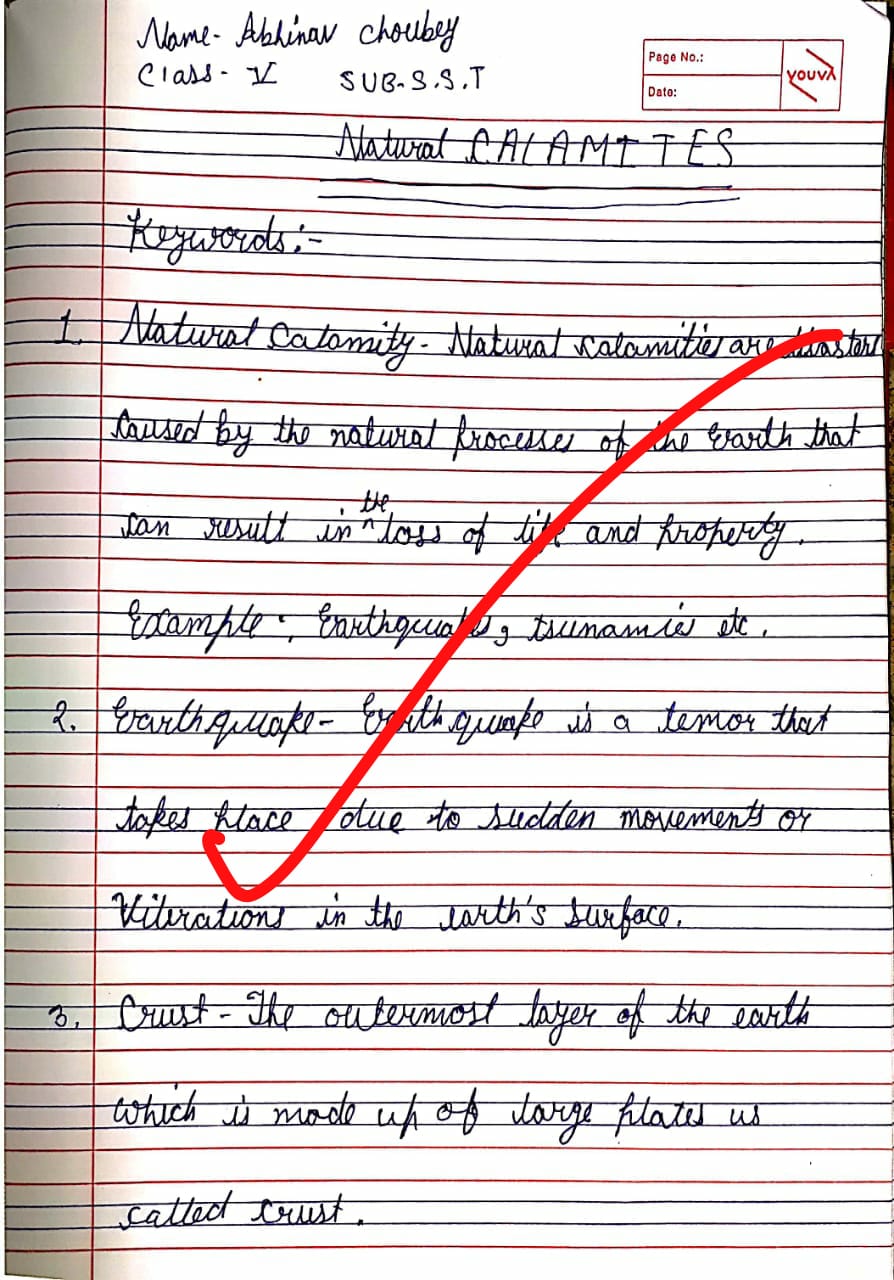 Name- Abhinav Choubey
Class- V SUB-S.S.T
Page No.:
Date:
YOUVA
Natural CALAMITES
Keywords:-
1. Natural Calamity- Natural calamities are disasters
caused by the natural processes of the Earth that
can result in the loss of life and property.
Example:, Earthquakes, tsunamis etc.
2. Earthquake- Earthquake is a temor that
takes place due to sudden movements or
Vibrations in the earth's surface.
3. Crust- The outermost layer of the earth
which is made up of large plates us
called crust.